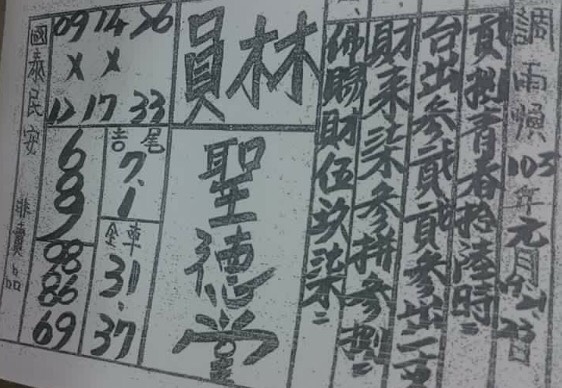 調雨順103年元月21.23日
貳捌青春拾陸時
台出參貳貳參出一支
財來柒參拼參捌
佛賜財伍玖柒
林員
聖德堂
09 14 26
X X
12 17 33
吉尾
7.1
全車
31.37
6
8
9
98
86
69
國泰民安
非賣品